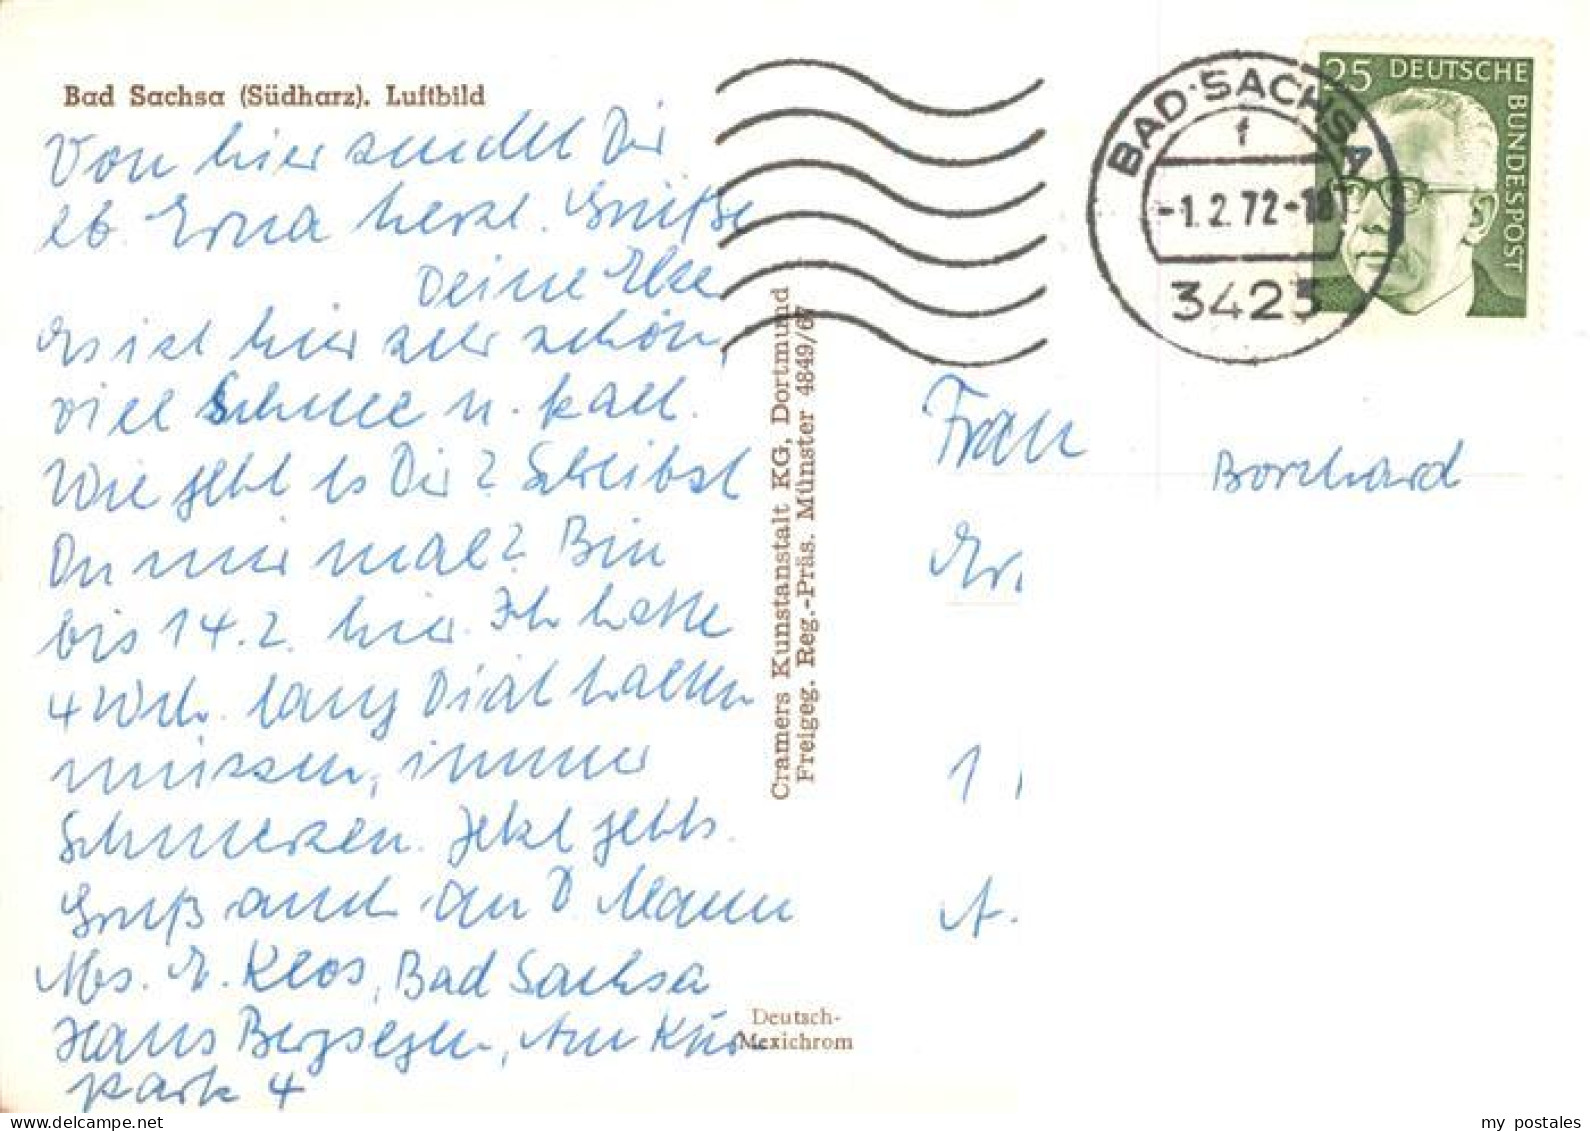 Bad Sachsa (Südharz). Luftbild
Von hier sendet Dir
lb. Erna herzl. Grüße
Deine Elke
Es ist hier sehr schön,
viel Schnee u. kalt.
Wie geht es Dir? Schreibst
Du mir mal? Bin
bis 14.2. hier. Ich hatte
4 Wch. lang Diät halten
müssen, immer
Schmerzen. Jetzt gehts.
Gruß auch an D. Mann
Abs. E. Klos, Bad Sachsa
Haus Bergsegen, Am Kur-
park 4
Cramers Kunstanstalt KG, Dortmund
Freigeg. Reg.-Präs. Münster 4849/67
Deutsch-
Mexichrom
BAD SACHSA
f
-1.2.72-18
3423
25 DEUTSCHE
BUNDESPOST
Frau
Borchard
1
A.